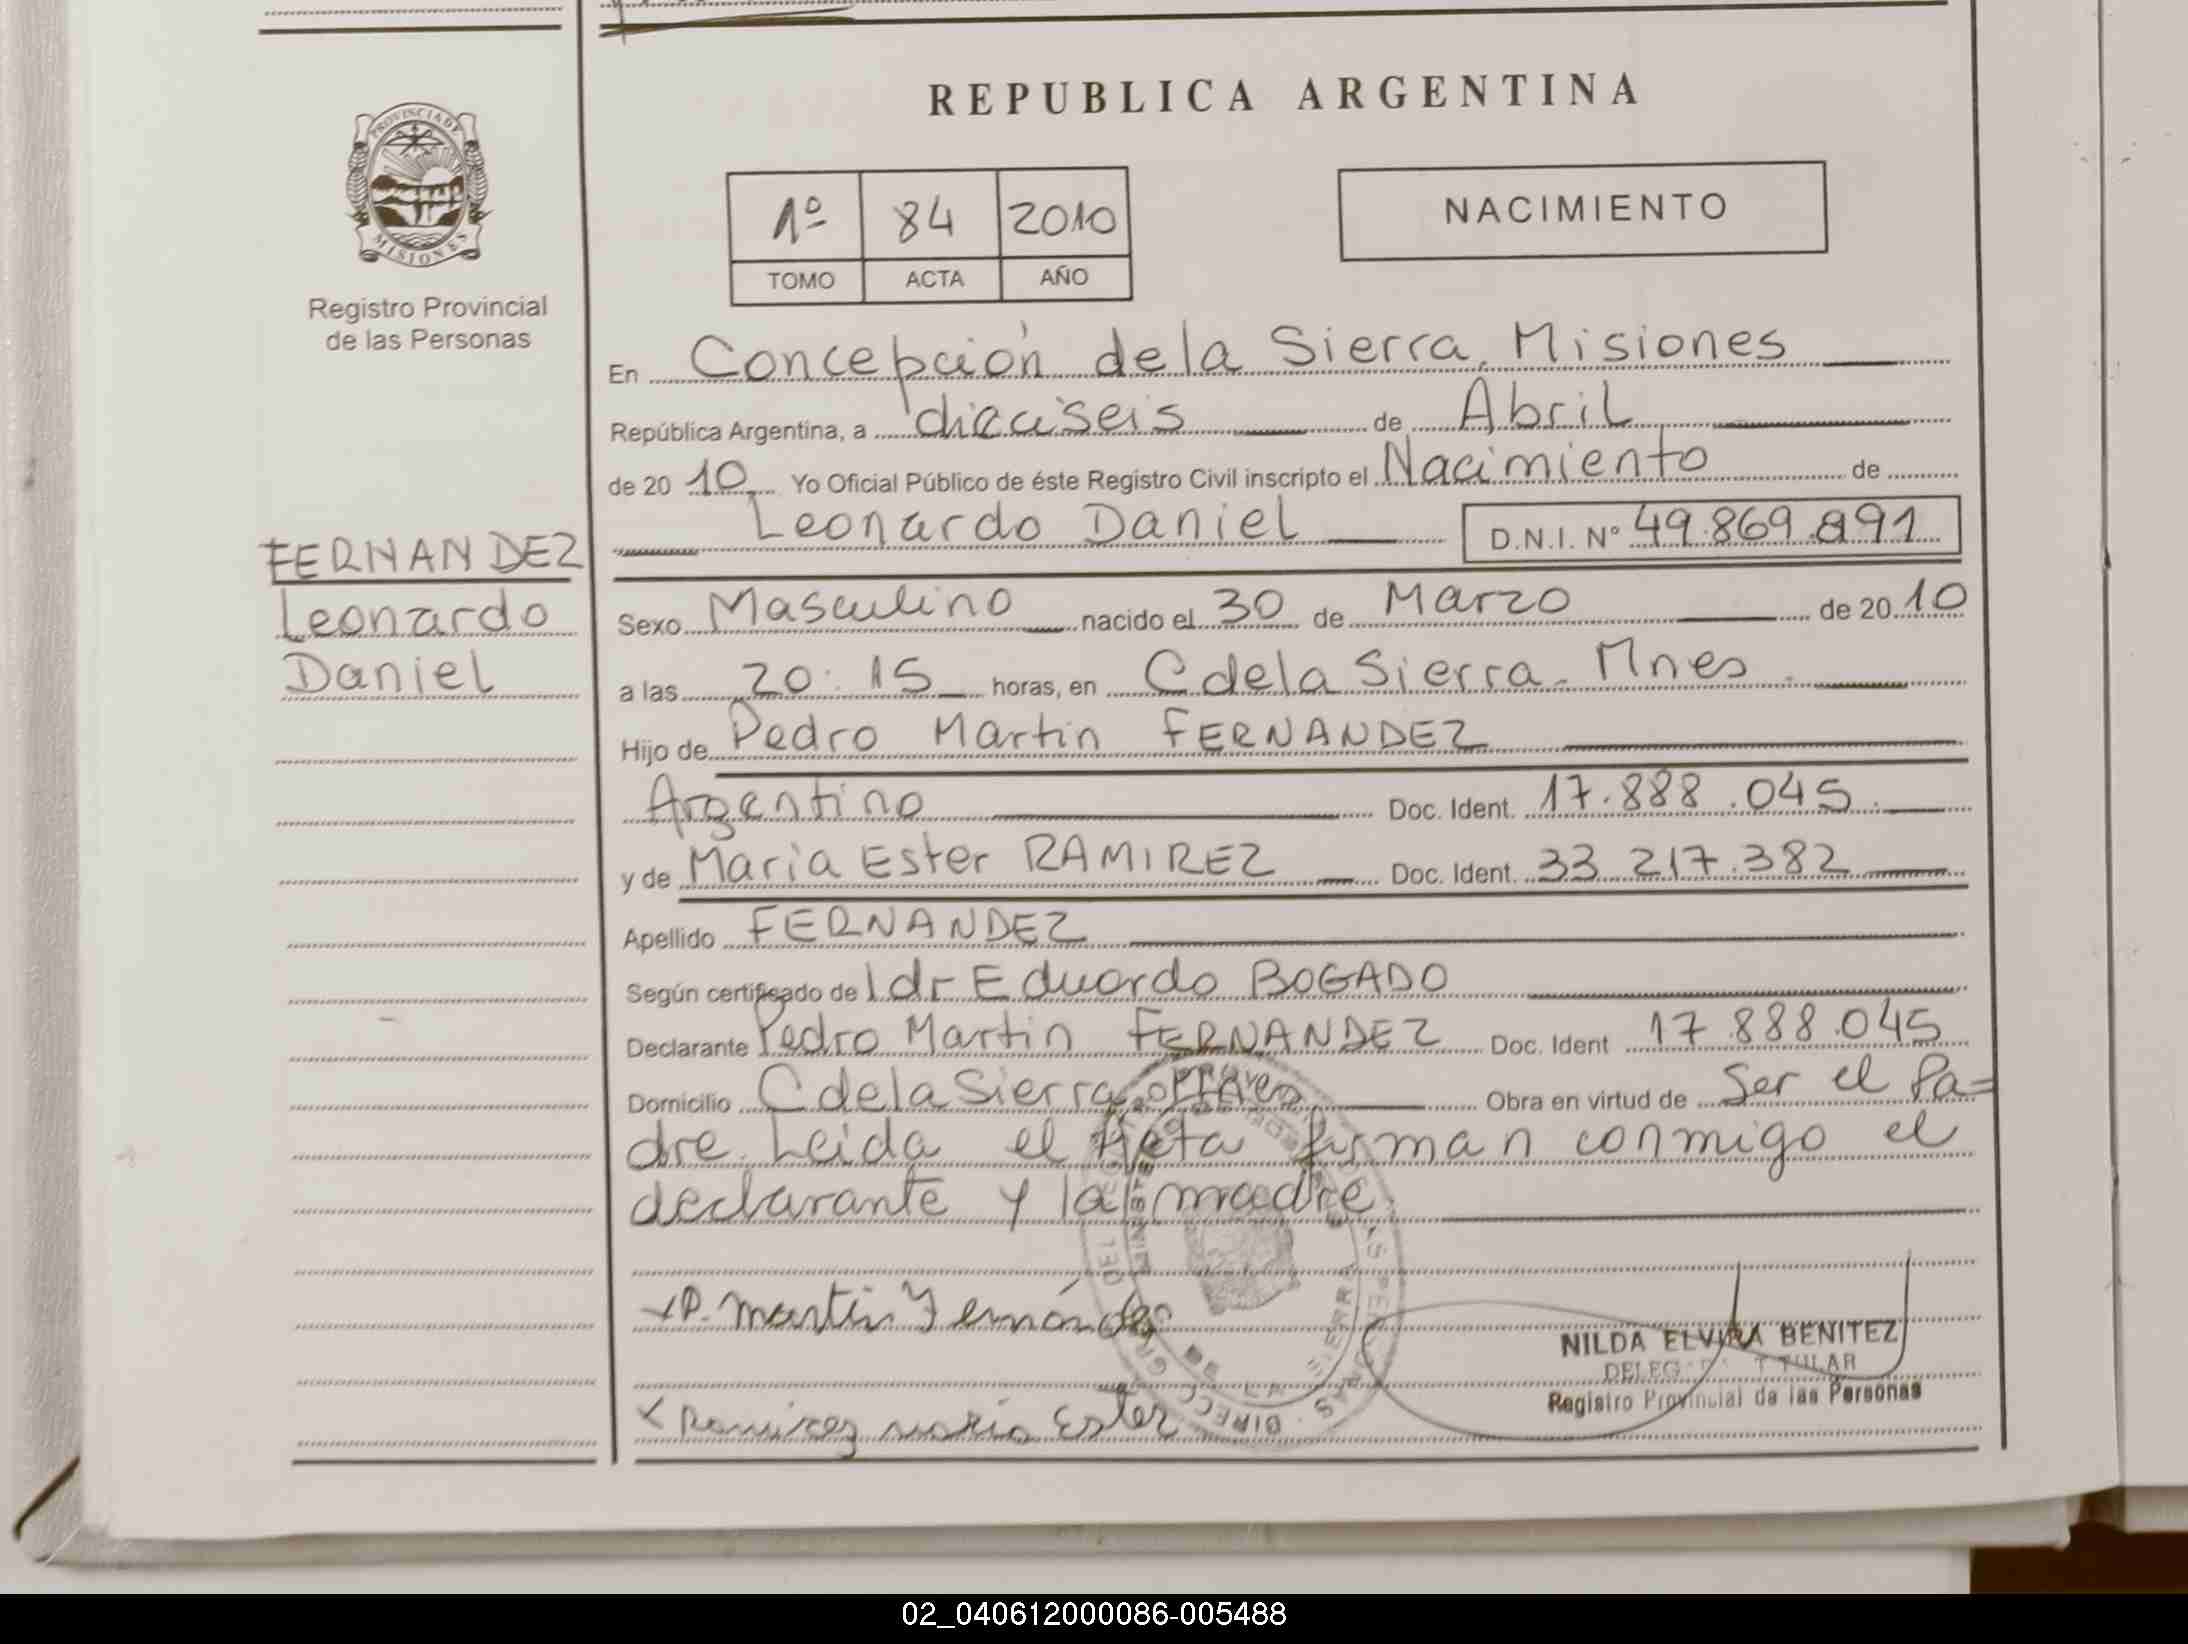 REPUBLICA ARGENTINA
PROVINCIA DE MISIONES
Registro Provincial
de las Personas
1º 84 2010
TOMO ACTA AÑO
NACIMIENTO
En Concepción de la Sierra. Misiones
República Argentina, a dieciseis de Abril
de 20 10. Yo Oficial Público de éste Registro Civil inscripto el Nacimiento de
Leonardo Daniel D.N.I. Nº 49.869.891
FERNANDEZ
Leonardo
Daniel
Sexo Masculino nacido el 30 de Marzo de 20 10
a las 20:15 horas, en C de la Sierra. Mnes.
Hijo de Pedro Martin FERNANDEZ
Argentino Doc. Ident. 17.888.045.
y de Maria Ester RAMIREZ Doc. Ident. 33 217.382
Apellido FERNANDEZ
Según certificado de Eduardo BOGADO
Declarante Pedro Martin FERNANDEZ Doc. Ident 17.888.045
Domicilio C de la Sierra Obra en virtud de Ser el Pa=
dre. Leida el Acta firman conmigo el
declarante y la madre.
P. Martin Fernández
Ramirez Maria Ester
NILDA ELVIRA BENITEZ
TITULAR
Registro Provincial de las Personas
02_040612000086-005488